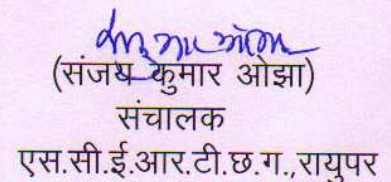 (संजय कुमार ओझा)
संचालक
एस.सी.ई.आर.टी.छ.ग.,रायुपर